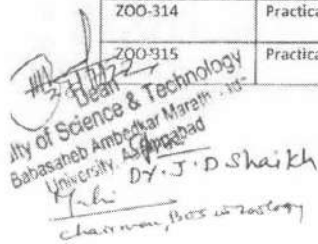 ZOO-314 Practica
ZOO-315 Practica
Dean
lty of Science & Technology
Babasaheb Ambedkar Marath
University,
Dr. J. D Shaikh
chairman, BOS in Zoology